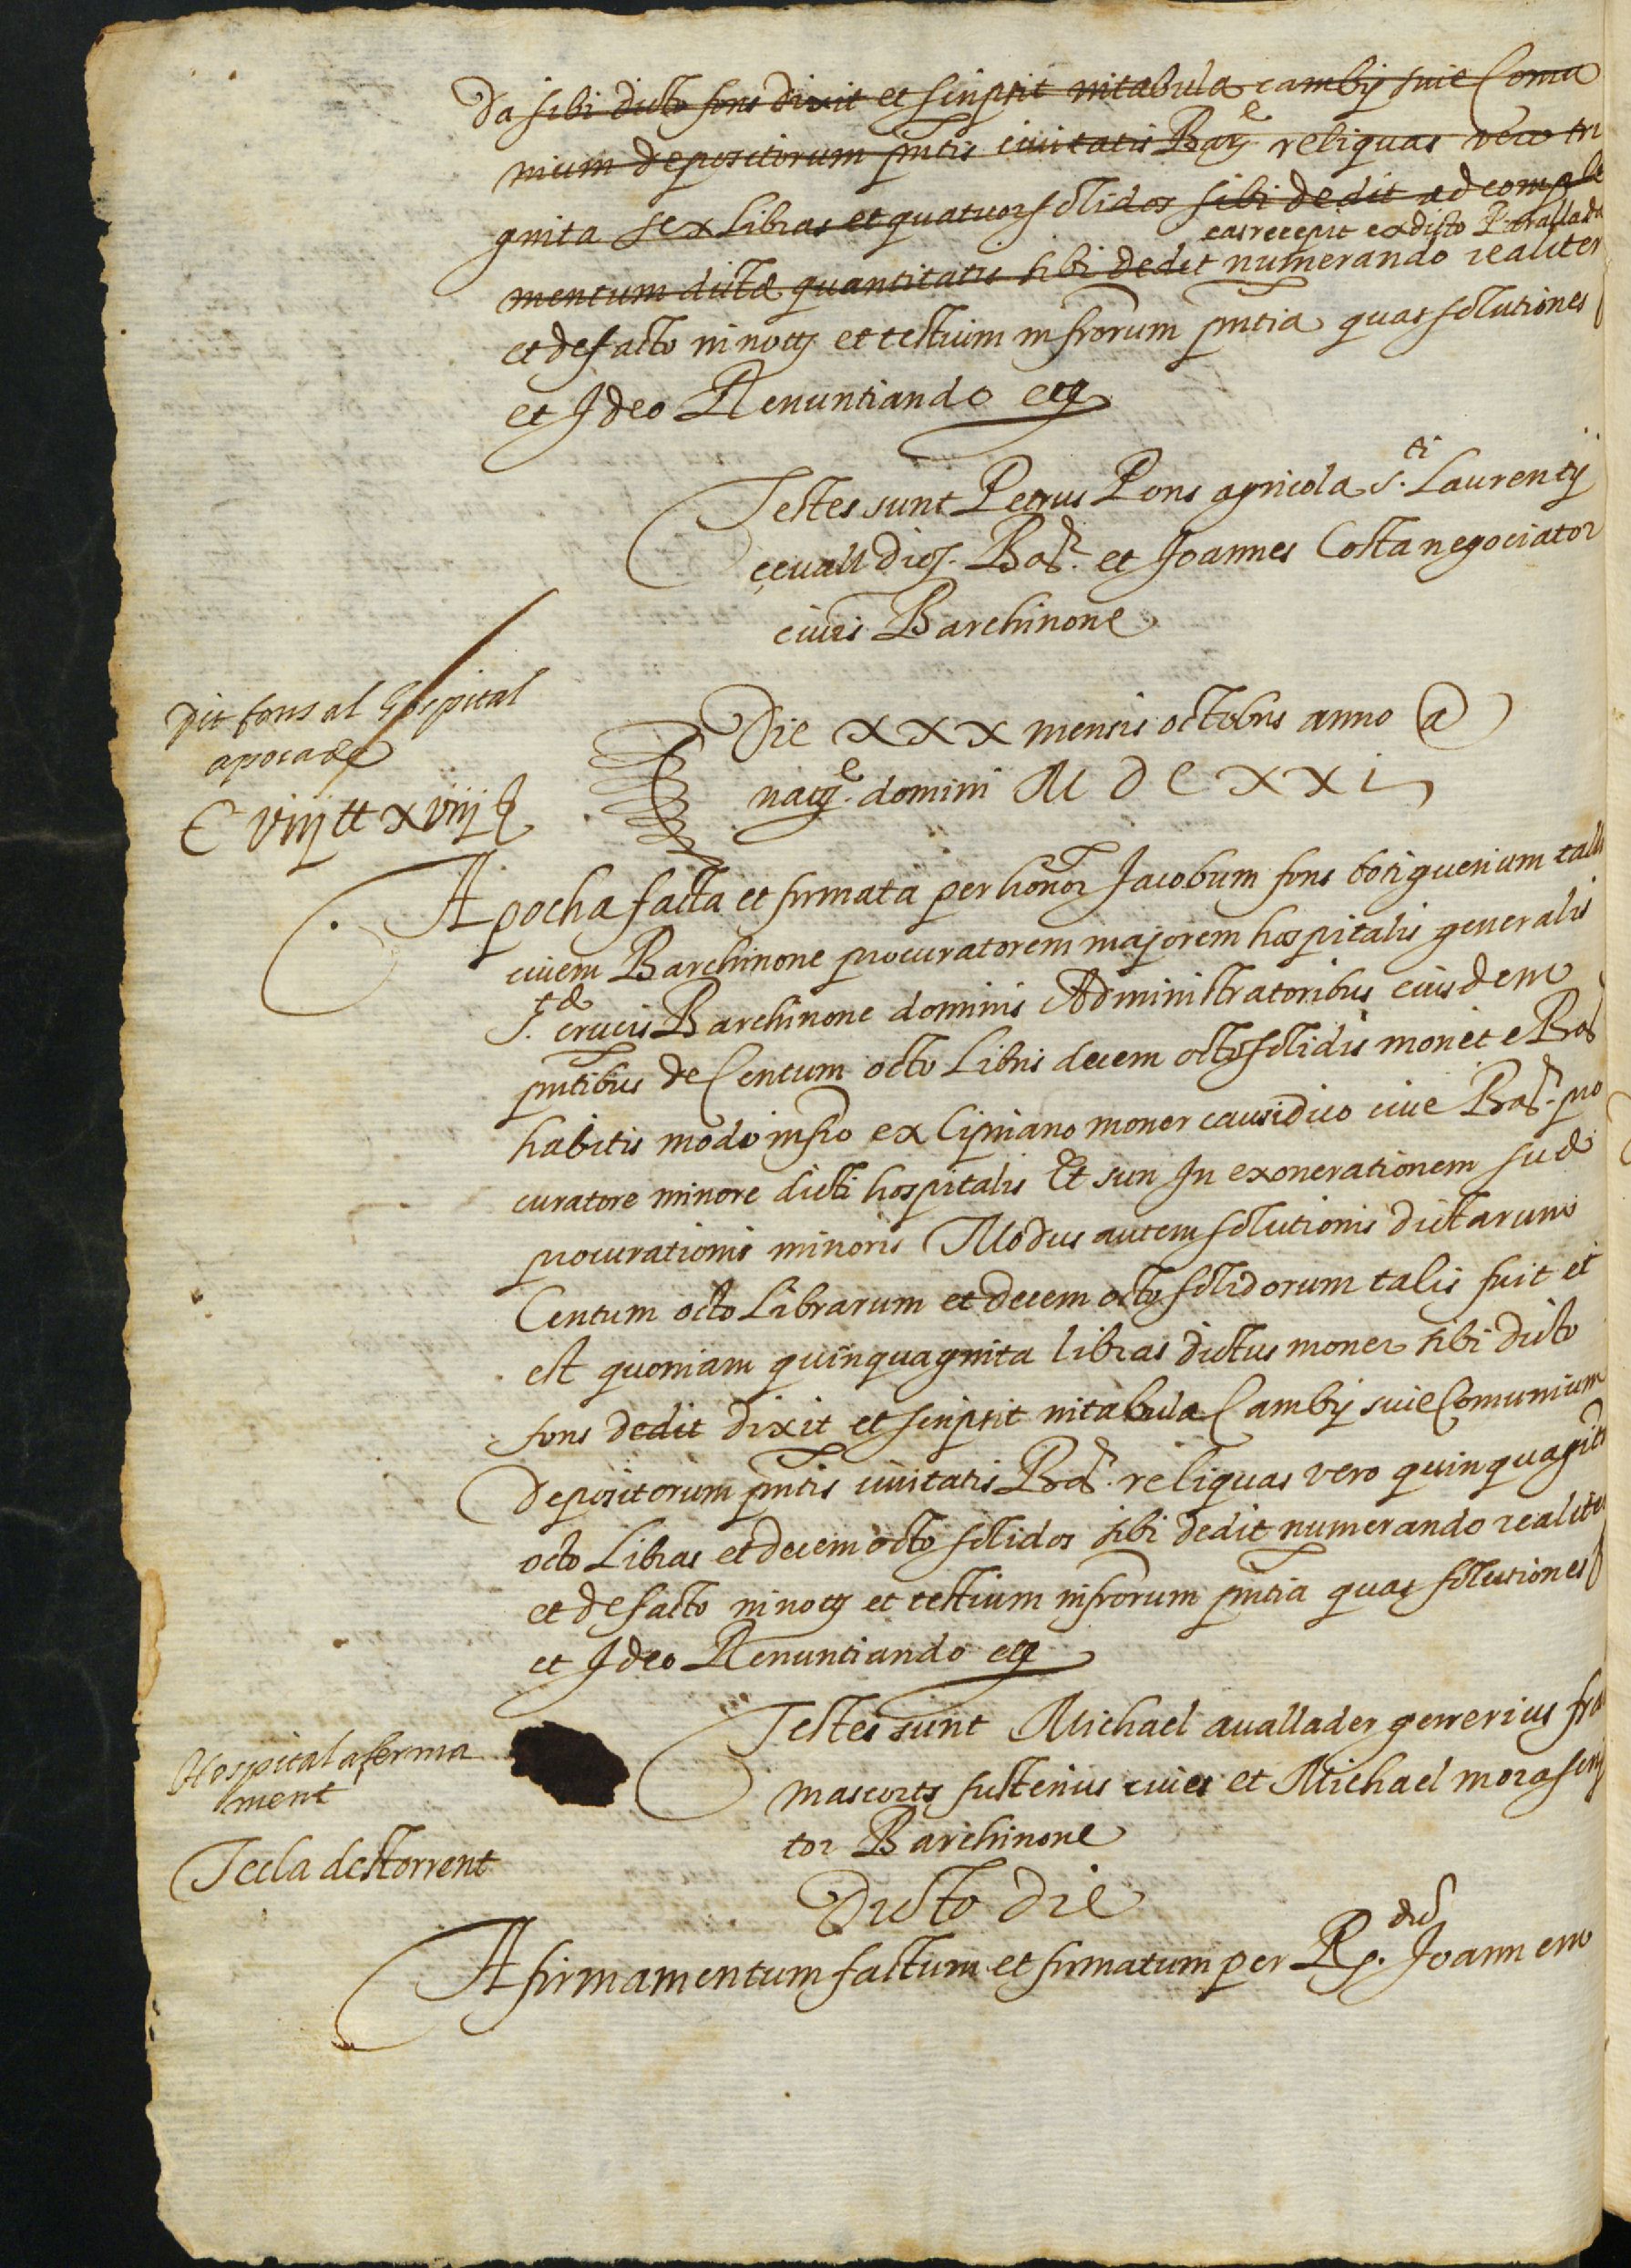 da sibi dicto fons dixit et scripsit in tabula cambij sive comu
nium depositorum pntis civitatis Barᵉ reliquas vero tri
ginta sex libras et quatuor solidos sibi dedit ad comple
eas recepit ex dicto Parallada
mentum dictæ quantitatis sibi dedit numerando realiter
et de facto in notij et testium infrorum pntia quas solutiones
et Ideo Renuntiando etc
Testes sunt Petrus Pons agricola S.ti Laurentij
Bar. et Joannes Costa negociator
civis Barchinone
Dit fons al hospital
apoca de
C viiij tt xviij ß
Die XXX mensis octobris anno a
natᵉ. domini M D C X X i
Apocha facta et firmata per honor Jacobum fons botiguerium tall
civem Barchinone procuratorem majorem hospitalis generalis
S.tæ crucis Barchinone dominis Administratoribus eiusdem
pntibus de Centum octo Libris decem octo solidis monete Bar
habitis modo infro ex Cipriano moner causidico cive Bar. pro
curatore minore dicti hospitalis Et sun In exonerationem suæ
procurationis minoris Modus autem solutionis dictarum
Centum octo Librarum et decem octo solidorum talis fuit et
est quoniam quinquaginta libras dictus moner sibi dicto
fons dedit dixit et scripsit in tabula Cambij sive Comunium
Depositorum pntis civitatis Bar. reliquas vero quinquaginta
octo Libras et decem octo solidos sibi dedit numerando realiter
et de facto in notij et testium infrorum pntia quas solutiones
et Ideo Renuntiando etc
Testes sunt Michael avallader gerrerius fra
mascorts fusterius cives et Michael mora scrip
tor Barchinone
Hospital aferma
ment
Tecla destorrent
Dicto die
Afirmamentum factum et firmatum per R. Joannem